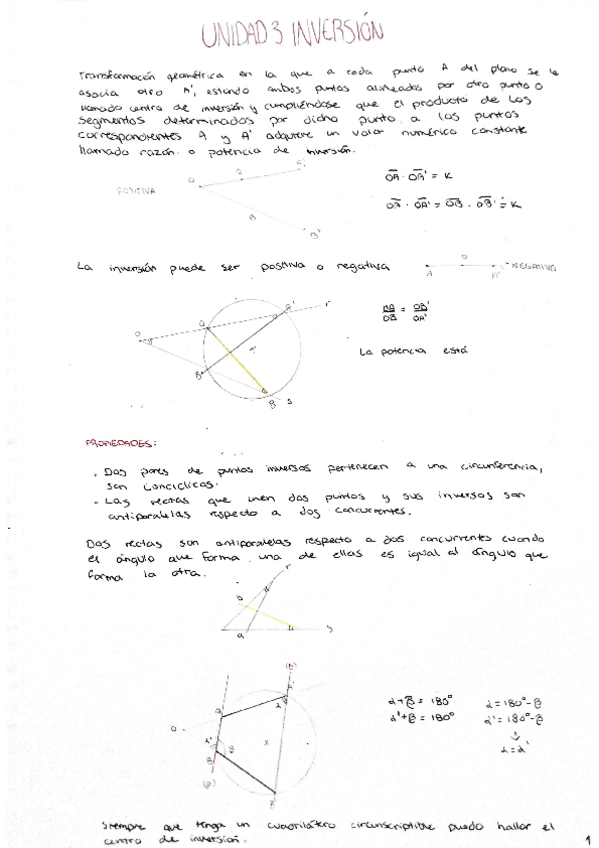 UNIDAD 3 INVERSIÓN
Transformación geométrica en la que a cada punto A del plano se le
asocia otro A', estando ambos puntos alineados por otro punto O
llamado centro de inversión y cumpliéndose que el producto de los
segmentos determinados por dicho punto a los puntos
correspondientes A y A' adquiere un valor numérico constante
llamado razón o potencia de inversión.
POSITIVA
OA · OA' = K
OA · OA' = OB · OB' = K
La inversión puede ser positiva o negativa
NEGATIVO
OA/OB = OB'/OA'
La potencia está
PROPIEDADES:
- Dos pares de puntos inversos pertenecen a una circunferencia,
son concíclicos.
- Las rectas que unen dos puntos y sus inversos son
antiparalelas respecto a dos concurrentes.
Dos rectas son antiparalelas respecto a dos concurrentes cuando
el ángulo que forma una de ellas es igual al ángulo que
forma la otra.
α+β = 180° α = 180°-β
α'+β = 180° α' = 180°-β
α = α'
Siempre que tenga un cuadrilátero circunscriptible puedo hallar el
centro de inversión.
1